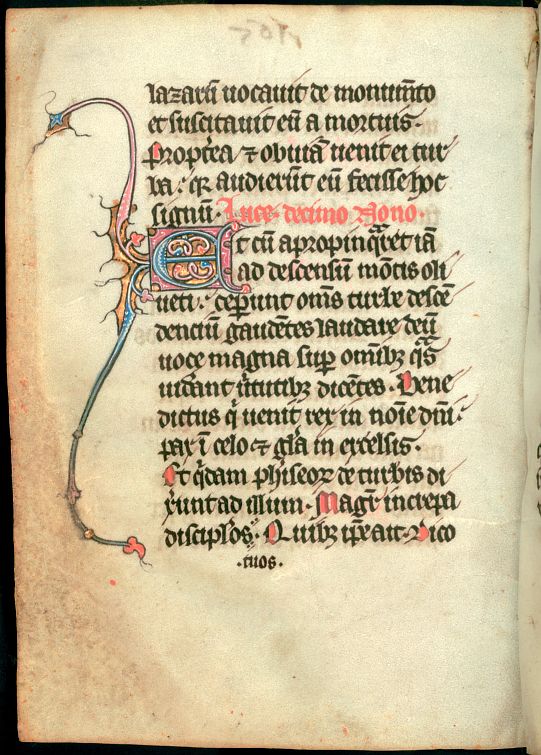 lazarū uocauit de monumēto
et suscitauit eū a mortuis.
Propt̾ea ⁊ obuiā uenit ei tur
ba: qꝛ audierūt eū fecisse hoc
signū. Luce. decimo Nono.
Et cū apropinq̄ret iā
ad descensū mōtis oli
ueti: ceperunt om̄s turbe descē
denciū gaudētes laudare deū
uoce magna suꝑ omībꝫ q̄s
uidant u̾tutibꝫ dicētes. Bene
dictus q̇ uenit rex in noīe dn̄i:
pax ī celo ⁊ gl̄a in excelsis.
Et q̇dam phiseoꝝ de turbis di
xerunt ad illum. Magr̄ increpa
discipl̄os. Quibꝫ ip̄e ait. Dico
.tuos.